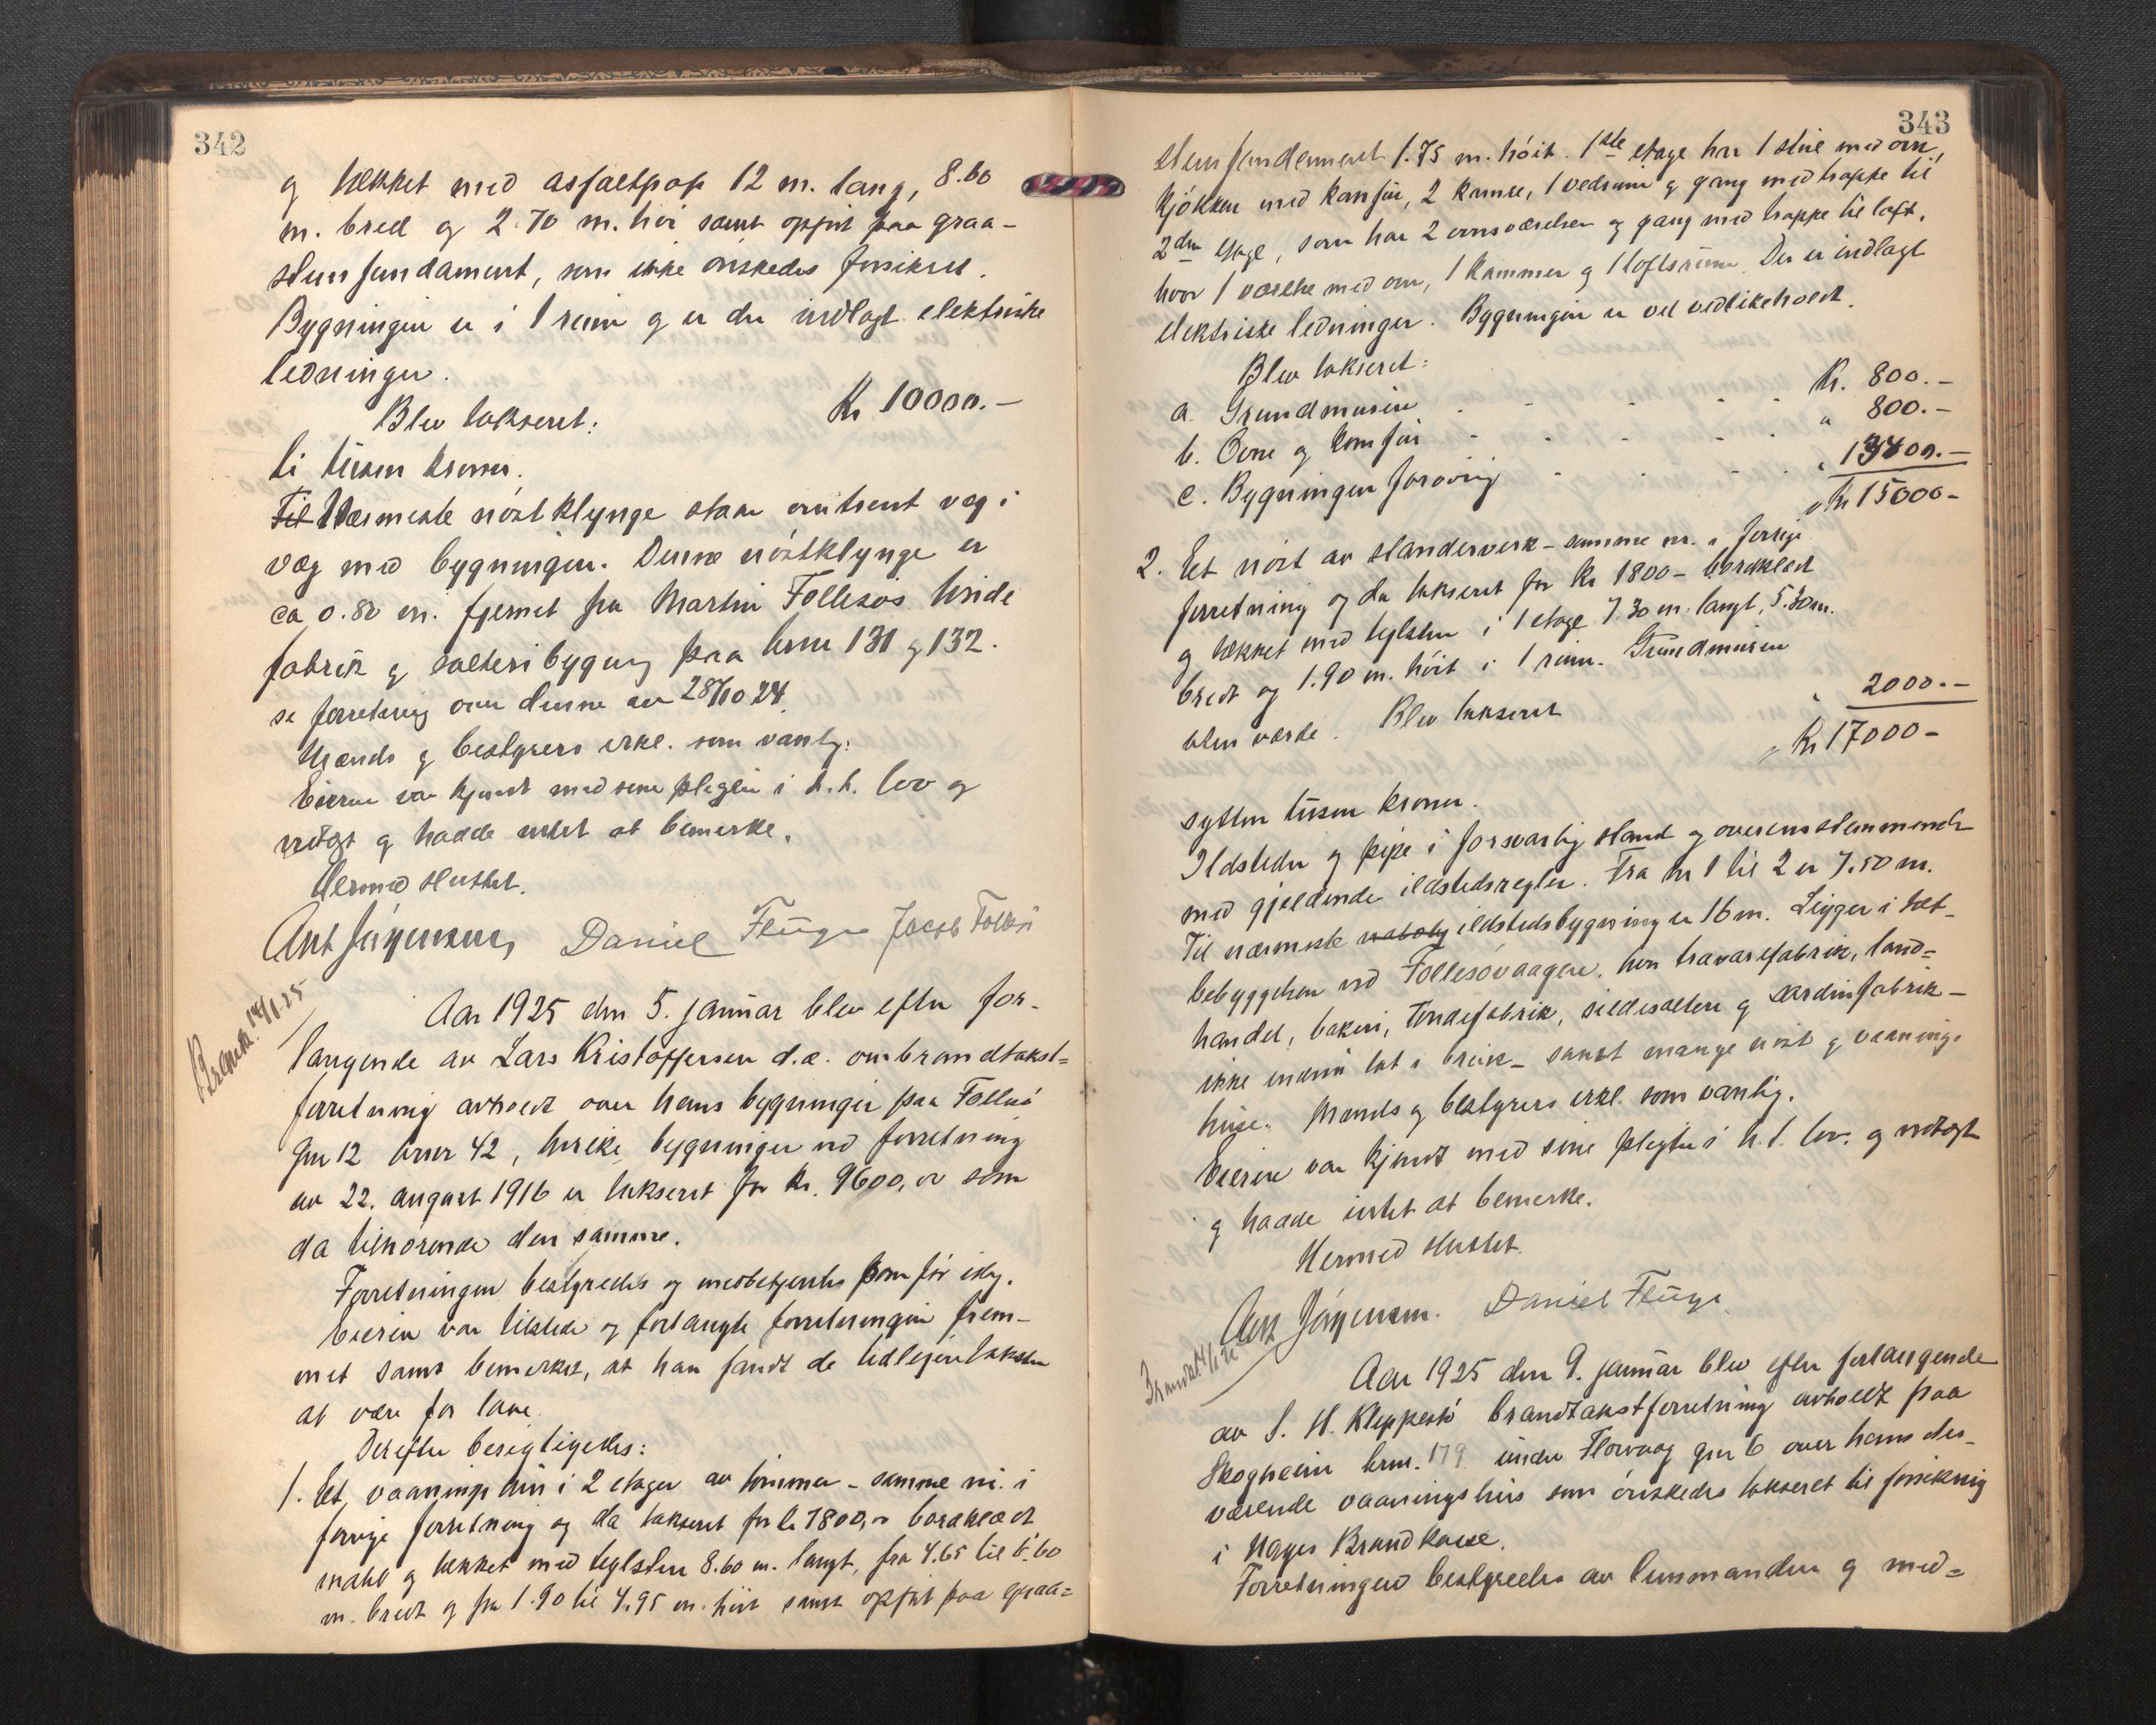 342
og tækket med asfaltpap 12 m. lang, 8.60
m. bred og 2.70 m. høi samt opført paa graa-
stensfundament, som ikke ønskedes forsikret.
Bygningen er i 1 rum og er der indlagt elektriske
ledninger.
Blev takseret: Kr 10000.—
ti tusen kroner.
Til Nærmeste nøstklynge staar omtrent væg i
væg med bygningen. Denne nøstklynge er
ca 0.80 m. fjernet fra Martin Follesøs tønde
fabrik og salteribygning paa brnr 131 og 132.
se forretning over denne av 28/10 24.
Mænds og bestyrers erkl. som vanlig.
Eieren var kjendt med sine plegter i h.t. lov og
vedtægt og hadde intet at bemerke.
Hermed sluttet.
Ant Jørgensen, Daniel Fluge Jacob Follesø
Brandk. 14/1.25
Aar 1925 den 5. januar blev efter for-
langende av Lars Kristoffersen d.æ. om brandtakst=
forretning avholdt over hans bygninger paa Follesø
gnr 12 brnr 42, hvilke bygninger ved forretning
av 22. august 1916 er takseret for kr. 9600,00 som
da tilhørende den samme.
Forretningen bestyredes og medbetjentes som før idag.
Eieren var tilstede og forlangte forretningen frem-
met samt bemerket, at han fandt de tidligere takster
at være for lave.
Derefter besigtigedes:
1. Et vaaningshus i 2 etager av tømmer - samme nr. i
forrige forretning og da takseret for kr 7800,00 bordklædt
malt og tækket med teglsten 8.60 m. langt, fra 4.65 til 6.60
m. bredt og fra 1.90 til 4.95 m. høit samt opført paa graa=
343
stensfundament 1.75 m. høit. 1ste etage har 1 stue med ovn,
kjøkken med komfur, 2 kamre, 1 vedrum og gang med trappe til
2den etage, som har 2 ovnsværelser og gang med trappe til loft,
hvor 1 værelse med ovn, 1 kammer og 1 loftsrum. Der er indlagt
elektriske ledninger. Bygningen er vel vedlikeholdt.
Blev takseret:
a. Grundmuren - - - - - Kr. 800.-
b. Ovne og komfur - - - - - " 800.-
c. Bygningen forøvrig - - - - " 13400.-
Kr 15000-
2. Et nøst av standerverk - samme nr. i forrige
forretning og da takseret for Kr 1800- bordklædt
og tækket med teglsten i 1 etage 7.30 m. langt, 5.30 m.
bredt og 1.90 m. høit i 1 rum. Grundmuren
uten værde. Blev takseret " 2000.-
Kr 17000-
sytten tusen kroner.
Ildsteder og pipe i forsvarlig stand og overensstemmende
med gjeldende ildstedsregler. Fra nr 1 til 2 er 7.50 m.
Til nærmeste ildstedsbygning er 16 m. Ligger i tæt-
bebyggelsen ved Follesøvaagen, hvor travarefabrik, land=
handel, bakeri, tøndefabrik, sildesalteri og sardinfabrik -
ikke endnu tat i bruk - samt mange nøst og vaanings
huse. Mænds og bestyrers erkl. som vanlig.
Eieren var kjendt med sine plegter i h.t. lov. og vedtægt
og hadde intet at bemerke.
Hermed sluttet.
Ant Jørgensen. Daniel Fluge
Brandk. 14/1 25
Aar 1925 den 9. januar blev efter forlangende
av S. H. Kleppestø brandtakstforretning avholdt paa
Skogheim brnr. 179 under Florvaag gnr 6 over hans der-
værende vaaningshus som ønskedes takseret til forsikring
i Norges Brandkasse.
Forretningen bestyredes av lensmanden og med=